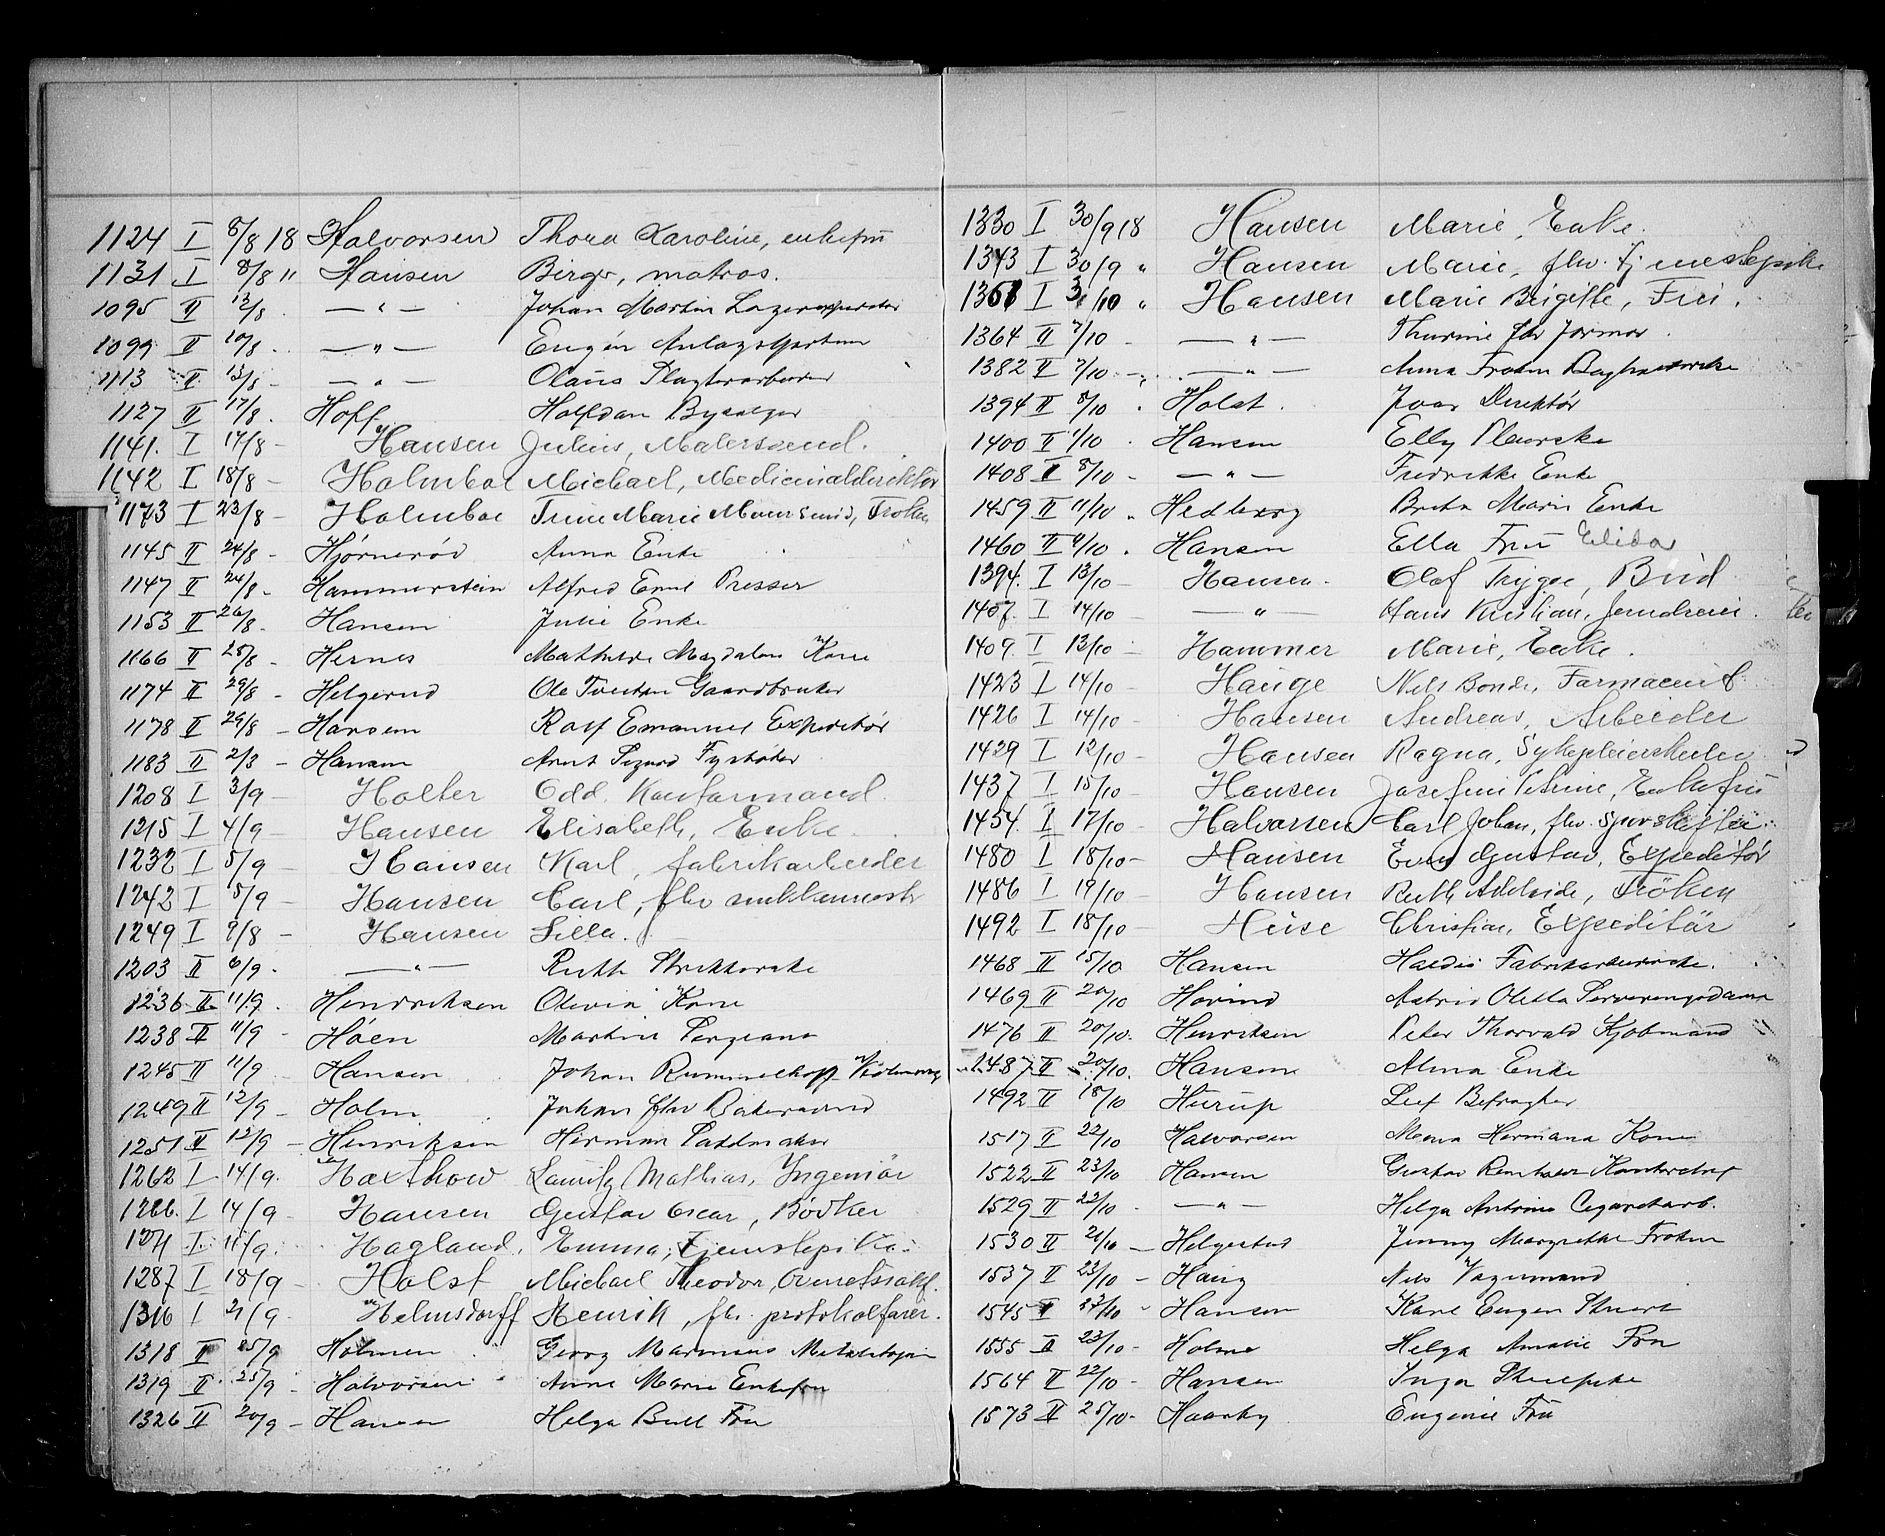 1124 I 8/8 18 Halvorsen Thora Karoline, enkefru
1131 I 8/8 " Hansen Birger, matros.
1095 II 12/8 . — " — Johan Martin
1099 II 10/8 .. — " — Eugen
1113 II 13/8 - — " — Olaus
1127 II 17/8 . Hoff Halfdan
1141. I 17/8 - Hansen Julius, Malersvend.
1142 I 18/8 - Holmboe Michael, Medicinaldirektør
1173 I 23/8 - Holmboe Trine Marie Frøken
1145 II 24/8 - Hjørnerød Anna Enke
1147 II 24/8 - Hammerstein Alfred Emil Presser
1153 II 26/8 - Hansen Julie Enke
1166 II 28/8 - Hernes Mathilde Magdalene Kone
1174 II 29/8 - Helgerud Ole Torsten Gaardbruker
1178 II 29/8 - Hansen Rolf Emanuel Expeditør
1183 II 2/3 - Hansen Arnt Sigurd Fyrbøter
1208 I 3/9 - Holter Odd, Kontormand.
1215 I 4/9 - Hansen Elisabeth, Enke.
1232 I 5/9 - Hansen Karl, fabrikarbeider
1242 I 5/9 - Hansen Carl, fhv
1249 I 9/8 - Hansen Silla.
1203 II 6/9 . — " — Ruth Strikkerske
1236 II 11/9 . Hendriksen Olevia Kone
1238 II 11/9 - Høen Martin Sergeant
1245 II 11/9 - Hansen Johan Rummelhoff
1249 II 12/9 - Holm Johan fhv Bakersvend
1251 II 12/9 - Henriksen Herman Salmaker
1262 I 14/9 . Haxthow Lauritz Mathias, Ingeniør
1266. I 14/9 - Hansen Gustav Oscar, Bødker
I 11/9 . Hagland, Emma, Tjenstepike.
1287 I 18/9 - Holst Michael Theodor, Overretssakf.
1316 I 21/9 - Helmsdorff Henrik, fhv. protokolfører.
1318 II 25/9 - Holmen Georg Marinius
1319 II 25/9 - Halvorsen Anne Marie Enkefru
1326 II 20/9 - Hansen Helga Bull Fru
1330 I 30/9 18 Hansen Marie, Enke.
1343 I 30/9 " Hansen Marie, fhv. Tjenestepike
I /10 " Hansen Marie Birgitte, Frk.
1364 II 7/10 - — " — Thurine fhv Jormor.
1382 II 7/10 - — " — Anna Frøken
1394 II 8/10 . Holst. Ivar Direktør
1400 II 1/10 . Hansen Elly
1408 II 8/10 - — " — Fredrikke Enke
1459 II 11/10 . Hedberg Brita Marie Enke
1460 II 9/10 . Hansen Ella Fru Elida
1394. I 13/10 - Hansen. Olaf Trygve, Bud
1407. I 14/10 - — " — Hans Kristian, Jerndreier.
1409. I 13/10 - Hammer Marie, Enke.
1423 I 14/10 - Hauge Nils Bonde, Farmaceut
1426 I 14/10 - Hansen Andreas, Arbeider
1429 I 12/10 - Hansen Ragna, Sykepleierske
1437 I 15/10 - Hansen Josefine Petrine, Enkefru
1454. I 17/10 - Halvorsen Carl Johan, fhv. sporskifter.
1480 I 18/10 - Hansen Even Gustav, Expeditør
1486 I 19/10 - Hansen Ruth Adelaide, Frøken
1492 I 18/10 - Huse Christian, Expeditør
1468 II 15/10 Hansen Haldis Fabrikarbeiderske.
1469 II 20/10 Hovind Astrid Oletta Serveringsdame
1476 II 20/10. Henriksen Peter Thorvald Kjøbmand
1487 II 20/10. Hansen Alma Enke
1492 II 18/10 Hurup Leif Befragter
1517 II 22/10 Halvorsen Mona Hermana Kone
1522 II 23/10 Hansen Gustav Kontorchef
1529 II 22/10. — " — Helga Antonie Cigaretarb.
1530 II 21/10 - Helgestad Jenny Margrethe Frøken
1537 II 23/10 - Haug Nils Vognmand
1545 II 22/10 - Hansen Karl Eugen Stuert
1555 II 23/10 - Holme Helga Amalie Fru
1564 II 22/10 - Hansen Inga
1573 II 25/10 - Haarby Eugenie Fru